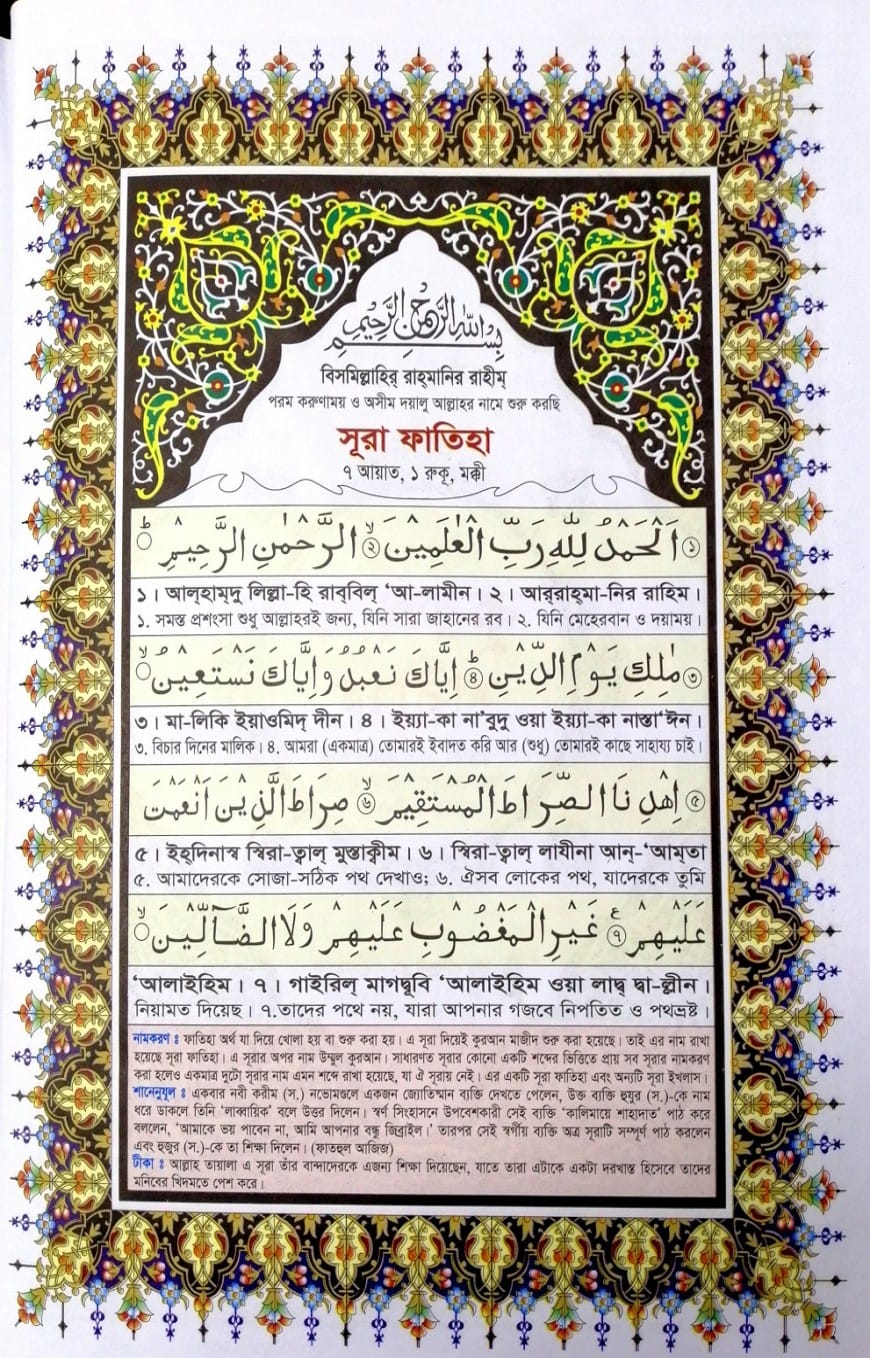 بِسْمِ اللهِ الرَّحْمٰنِ الرَّحِيْمِ
বিসমিল্লাহির্ রাহ্‌মানির রাহীম্
পরম করুণাময় ও অসীম দয়ালু আল্লাহর নামে শুরু করছি
সূরা ফাতিহা
৭ আয়াত, ১ রুকূ, মক্কী
① اَلْحَمْدُ لِلّٰهِ رَبِّ الْعٰلَمِيْنَ ۙ② الرَّحْمٰنِ الرَّحِيْمِ ۙ
১। আল্‌হাম্‌দু লিল্লা-হি রাব্‌বিল্ ‘আ-লামীন। ২। আর্‌রাহ্‌মা-নির রাহিম।
১. সমস্ত প্রশংসা শুধু আল্লাহরই জন্য, যিনি সারা জাহানের রব। ২. যিনি মেহেরবান ও দয়াময়।
③ مٰلِكِ يَوْمِ الدِّيْنِ ؕ④ اِيَّاكَ نَعْبُدُ وَاِيَّاكَ نَسْتَعِيْنُ ؕ
৩। মা-লিকি ইয়াওমিদ্ দীন। ৪। ইয়্যা-কা না’বুদু ওয়া ইয়্যা-কা নাস্তা‘ঈন।
৩. বিচার দিনের মালিক। ৪. আমরা (একমাত্র) তোমারই ইবাদত করি আর (শুধু) তোমারই কাছে সাহায্য চাই।
⑤ اِهْدِنَا الصِّرَاطَ الْمُسْتَقِيْمَ ۙ⑥ صِرَاطَ الَّذِيْنَ اَنْعَمْتَ
৫। ইহ্‌দিনাস্ব স্বিরা-ত্বাল্ মুস্তাক্বীম। ৬। স্বিরা-ত্বাল্ লাযীনা আন্-‘আম্‌তা
৫. আমাদেরকে সোজা-সঠিক পথ দেখাও; ৬. ঐসব লোকের পথ, যাদেরকে তুমি
عَلَيْهِمْ ⑦ غَيْرِ الْمَغْضُوْبِ عَلَيْهِمْ وَلَا الضَّآلِّيْنَ
‘আলাইহিম। ৭। গাইরিল্ মাগদ্বূবি ‘আলাইহিম ওয়া লাদ্ব দ্বা-ল্লীন।
নিয়ামত দিয়েছ। ৭.তাদের পথে নয়, যারা আপনার গজবে নিপতিত ও পথভ্রষ্ট।
নামকরণ ঃ ফাতিহা অর্থ যা দিয়ে খোলা হয় বা শুরু করা হয়। এ সূরা দিয়েই কুরআন মাজীদ শুরু করা হয়েছে। তাই এর নাম রাখা
হয়েছে সূরা ফাতিহা। এ সূরার অপর নাম উম্মুল কুরআন। সাধারণত সূরার কোনো একটি শব্দের ভিত্তিতে প্রায় সব সূরার নামকরণ
করা হলেও একমাত্র দুটো সূরার নাম এমন শব্দে রাখা হয়েছে, যা ঐ সূরায় নেই। এর একটি সূরা ফাতিহা এবং অন্যটি সূরা ইখলাস।
শানেনুযূল ঃ একবার নবী করীম (স.) নভোমণ্ডলে একজন জ্যোতিষ্মান ব্যক্তি দেখতে পেলেন, উক্ত ব্যক্তি হুযুর (স.)-কে নাম
ধরে ডাকলে তিনি ‘লাব্বায়িক’ বলে উত্তর দিলেন। স্বর্ণ সিংহাসনে উপবেশকারী সেই ব্যক্তি ‘কালিমায়ে শাহাদাত’ পাঠ করে
বললেন, ‘আমাকে ভয় পাবেন না, আমি আপনার বন্ধু জিব্রাইল।’ তারপর সেই স্বর্গীয় ব্যক্তি অত্র সূরাটি সম্পূর্ণ পাঠ করলেন
এবং হুজুর (স.)-কে তা শিক্ষা দিলেন। (ফাতহুল আজিজ)
টীকা ঃ আল্লাহ তায়ালা এ সূরা তাঁর বান্দাদেরকে এজন্য শিক্ষা দিয়েছেন, যাতে তারা এটাকে একটা দরখাস্ত হিসেবে তাদের
মনিবের খিদমতে পেশ করে।